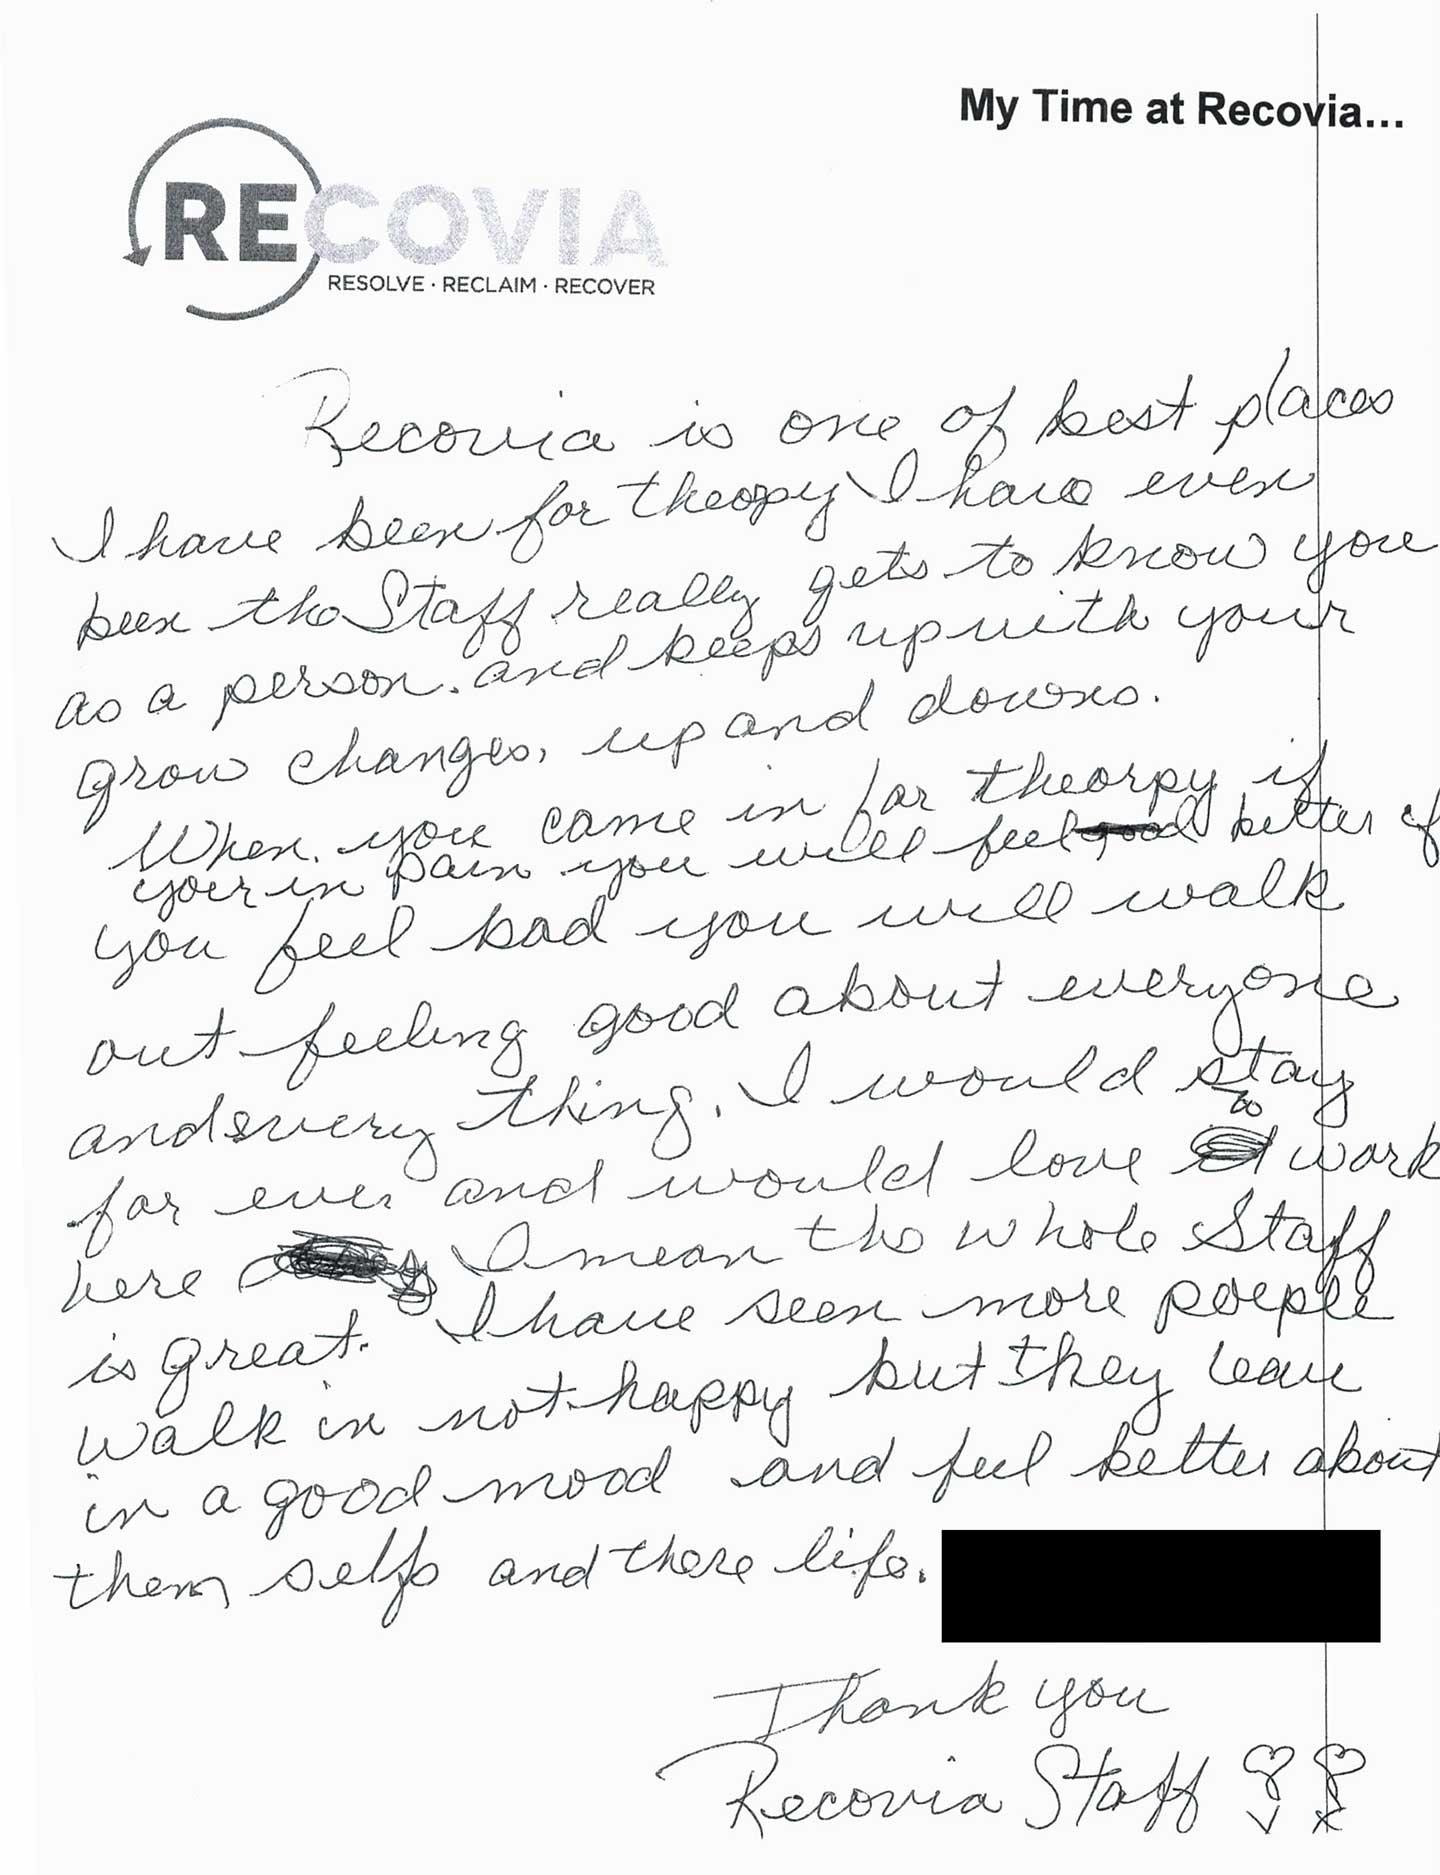 My Time at Recovia...
RECOVIA
RESOLVE · RECLAIM · RECOVER
Recovia is one of best places
I have been for theopy I have even
been the Staff really gets to know you
as a person. and keeps up with your
grow changes, up and downs.
When you come in for theorpy if
your in pain you will feel better if
you feel bad you will walk
out feeling good about everyone
and every thing. I would stay
for ever and would love to work
here I mean the whole Staff
is great. I have seen more poeple
walk in not happy but they leave
in a good mood and feel better about
them selfs and there life.
Thank you
Recovia Staff